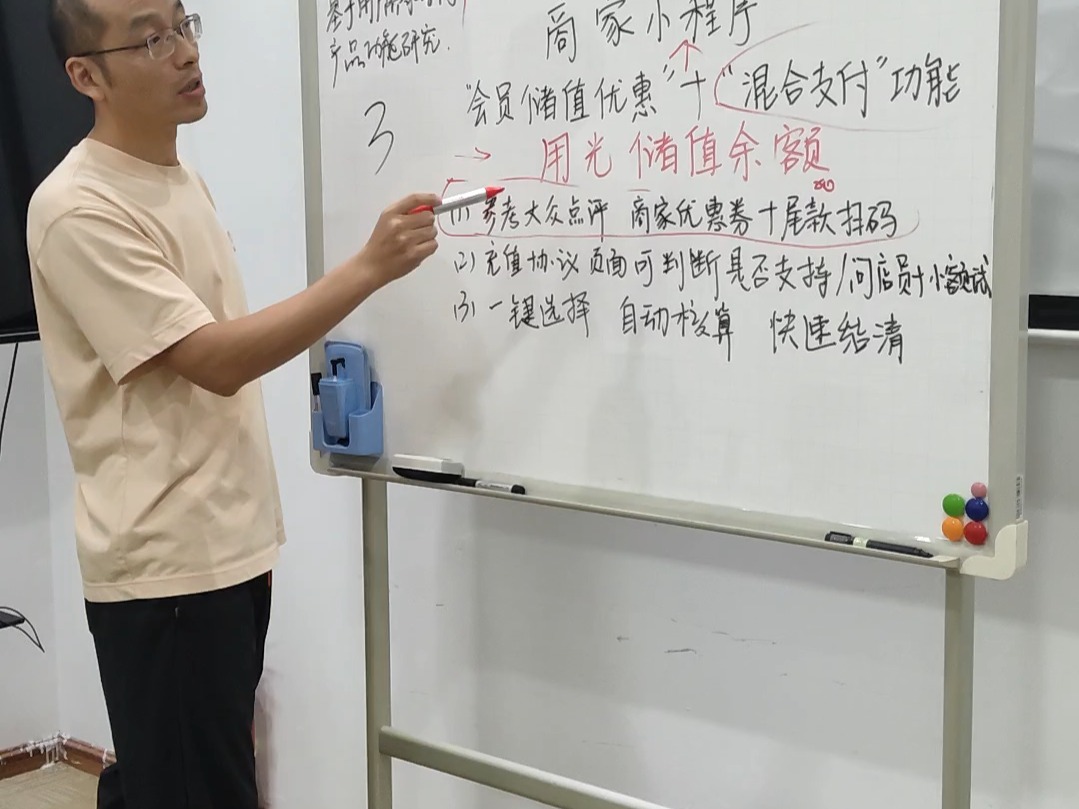 产品功能研究.
商家小程序
"会员储值优惠"+"混合支付"功能
3
→ 用光储值余额
(1) 参考大众点评 商家优惠券+尾款扫码
(2) 充值协议页面可判断是否支持/问店员+小额试
(3) 一键选择 自动核算 快速结清